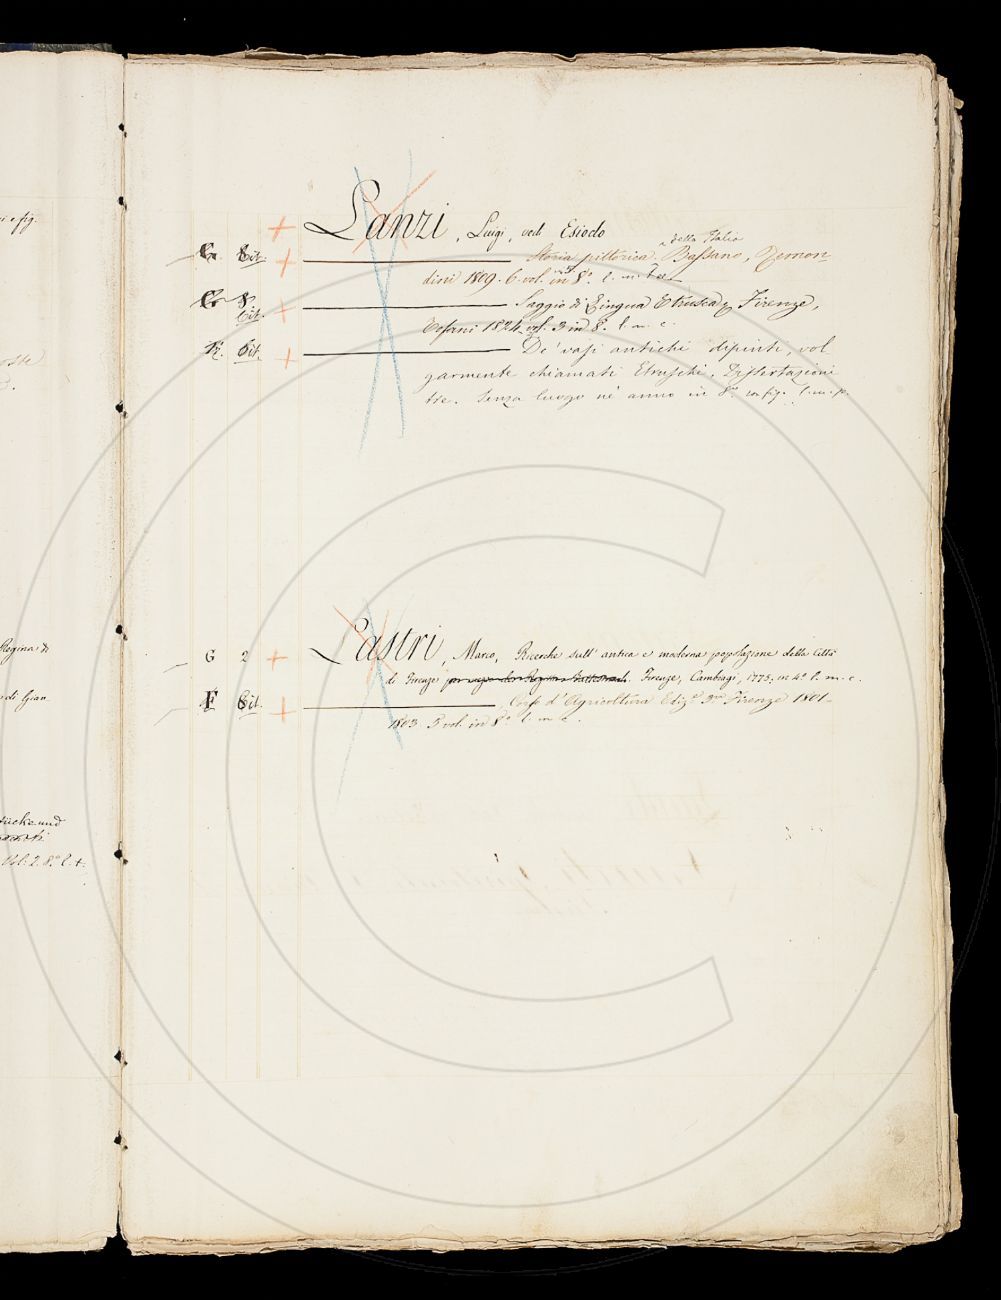 e fig.
Lanzi, Luigi, vedi Esiodo
della Italia
Cit. Storia pittorica. Bassano, Remon
dini 1809. 6. vol. in 8.º l. m.
8. Cit. Saggio di Lingua Etrusca, Firenze,
Tofani 1824, vol. 3 in 8. l. m. c.
Cit. De' vasi antichi dipinti, vol
garmente chiamati Etruschi, Dissertazioni
tre. Senza luogo nè anno in 8.º con fig. l. m. p.
Regina di
G 2 Lastri, Marco, Ricerche sull' antica e moderna popolazione della Città
di Firenze Firenze, Cambiagi, 1775, in 4º l. m. c.
di Gian
F Cit. Corso d'Agricoltura Ediz.e 3.a Firenze 1801-
1803 5 vol. in 8.º l. m. c.
tücke und
Vol. 2. 8.º l. t.